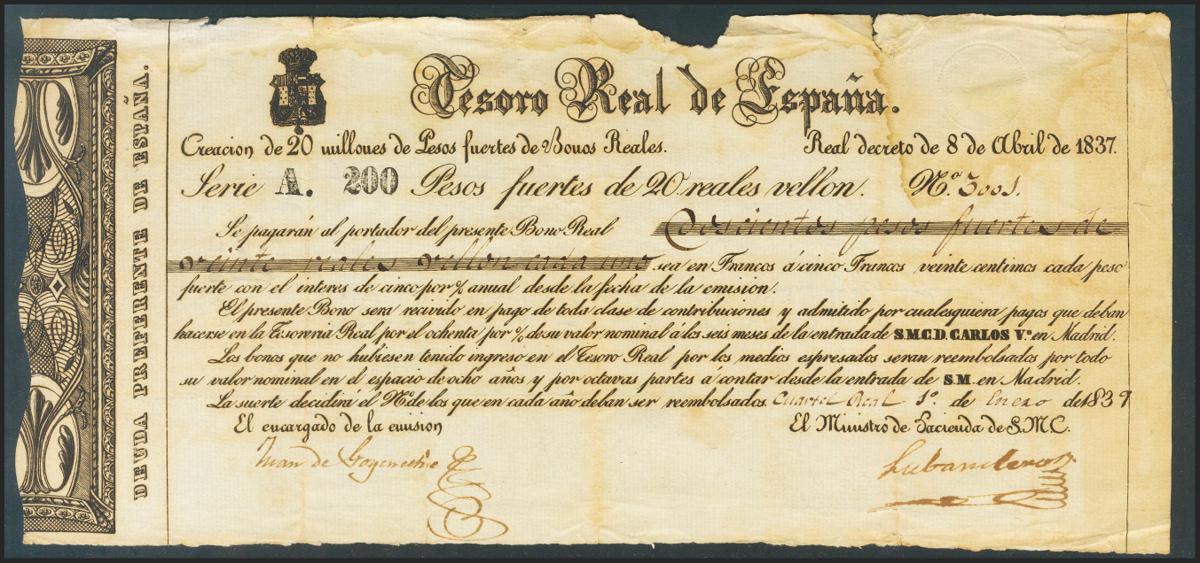 DEUDA PREFERENTE DE ESPAÑA.
Tesoro Real de España.
Creacion de 20 millones de Pesos fuertes de Bonos Reales. Real decreto de 8 de Abril de 1837.
Serie A. 200 Pesos fuertes de 20 reales vellon. N.º 3001.
Se pagarán al portador del presente Bono Real Doscientos pesos fuertes de
veinte reales vellon cada uno sea en Francos á cinco Francos veinte centimos cada peso
fuerte con el interes de cinco por % anual desde la fecha de la emision.
El presente Bono sera recivido en pago de toda clase de contribuciones y admitido por cualesquiera pagos que deban
hacerse en la Tisoreria Real por el ochenta por % de su valor nominal á los seis meses de la entrada de S.M.C.D. CARLOS Vº en Madrid.
Los bonos que no hubiesen tenido ingreso en el Tesoro Real por los medios espresados seran reembolsados por todo
su valor nominal en el espacio de ocho años y por octavas partes á contar desde la entrada de S.M. en Madrid.
La suerte decidira el Nº de los que en cada año deban ser reembolsados. Cuartel Real 1º. de Enero de 1839
El encargado de la emision El Ministro de Hacienda de S.M.C.
Juan de Goyeneche